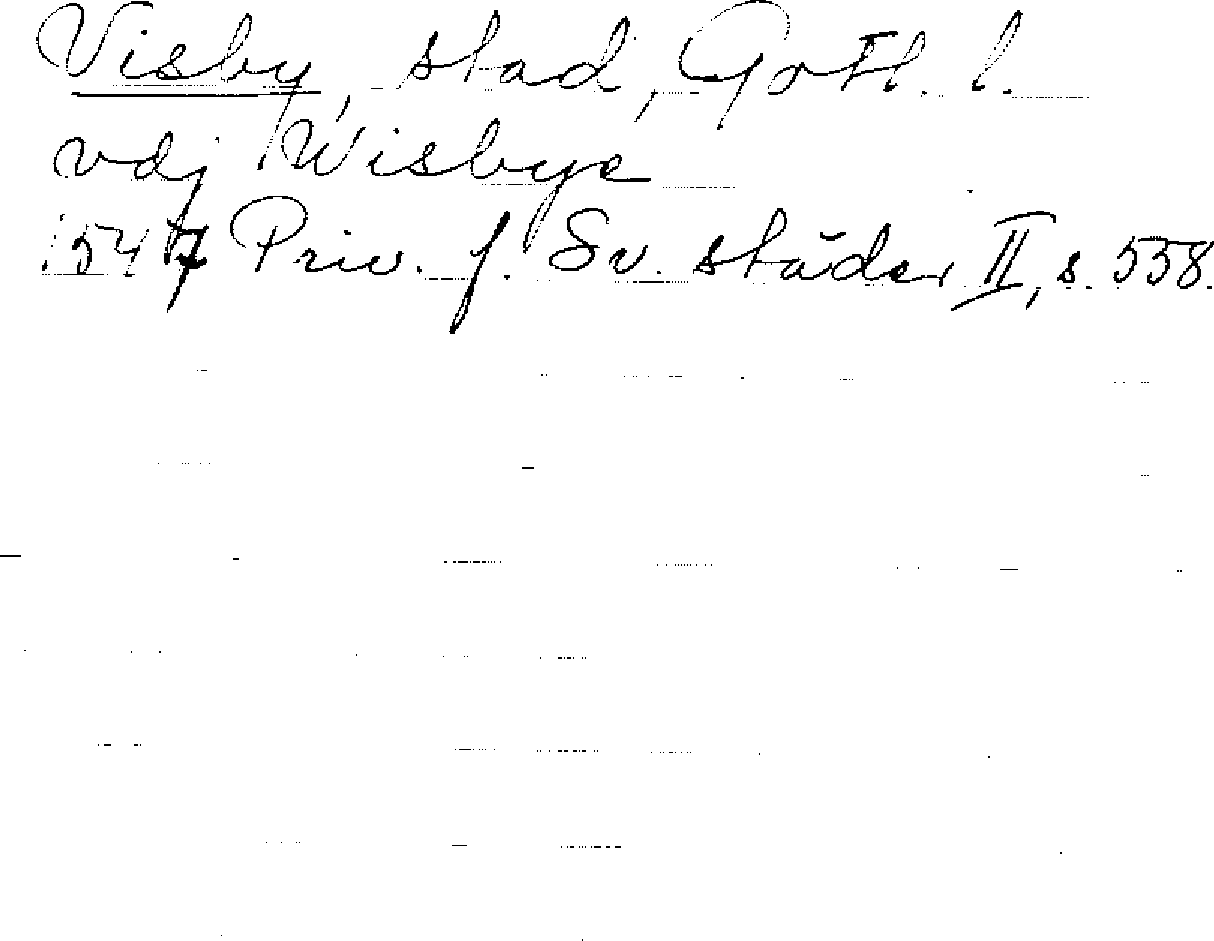 Visby, stad, Gotl. l.
vdj Wisbye
1547 Priv. f. Sv. städer II, s. 558.